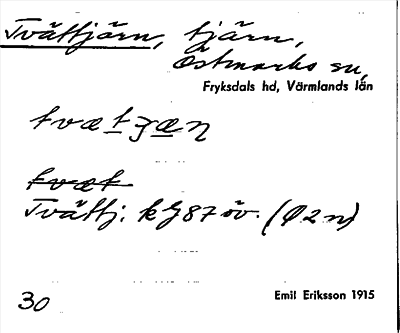 Tvättjärn, tjärn,
Östmarks sn,
Fryksdals hd, Värmlands län
tvætʒæn
tvæt
Tvättj: kG87 öv. (Ø2n)
30
Emil Eriksson 1915